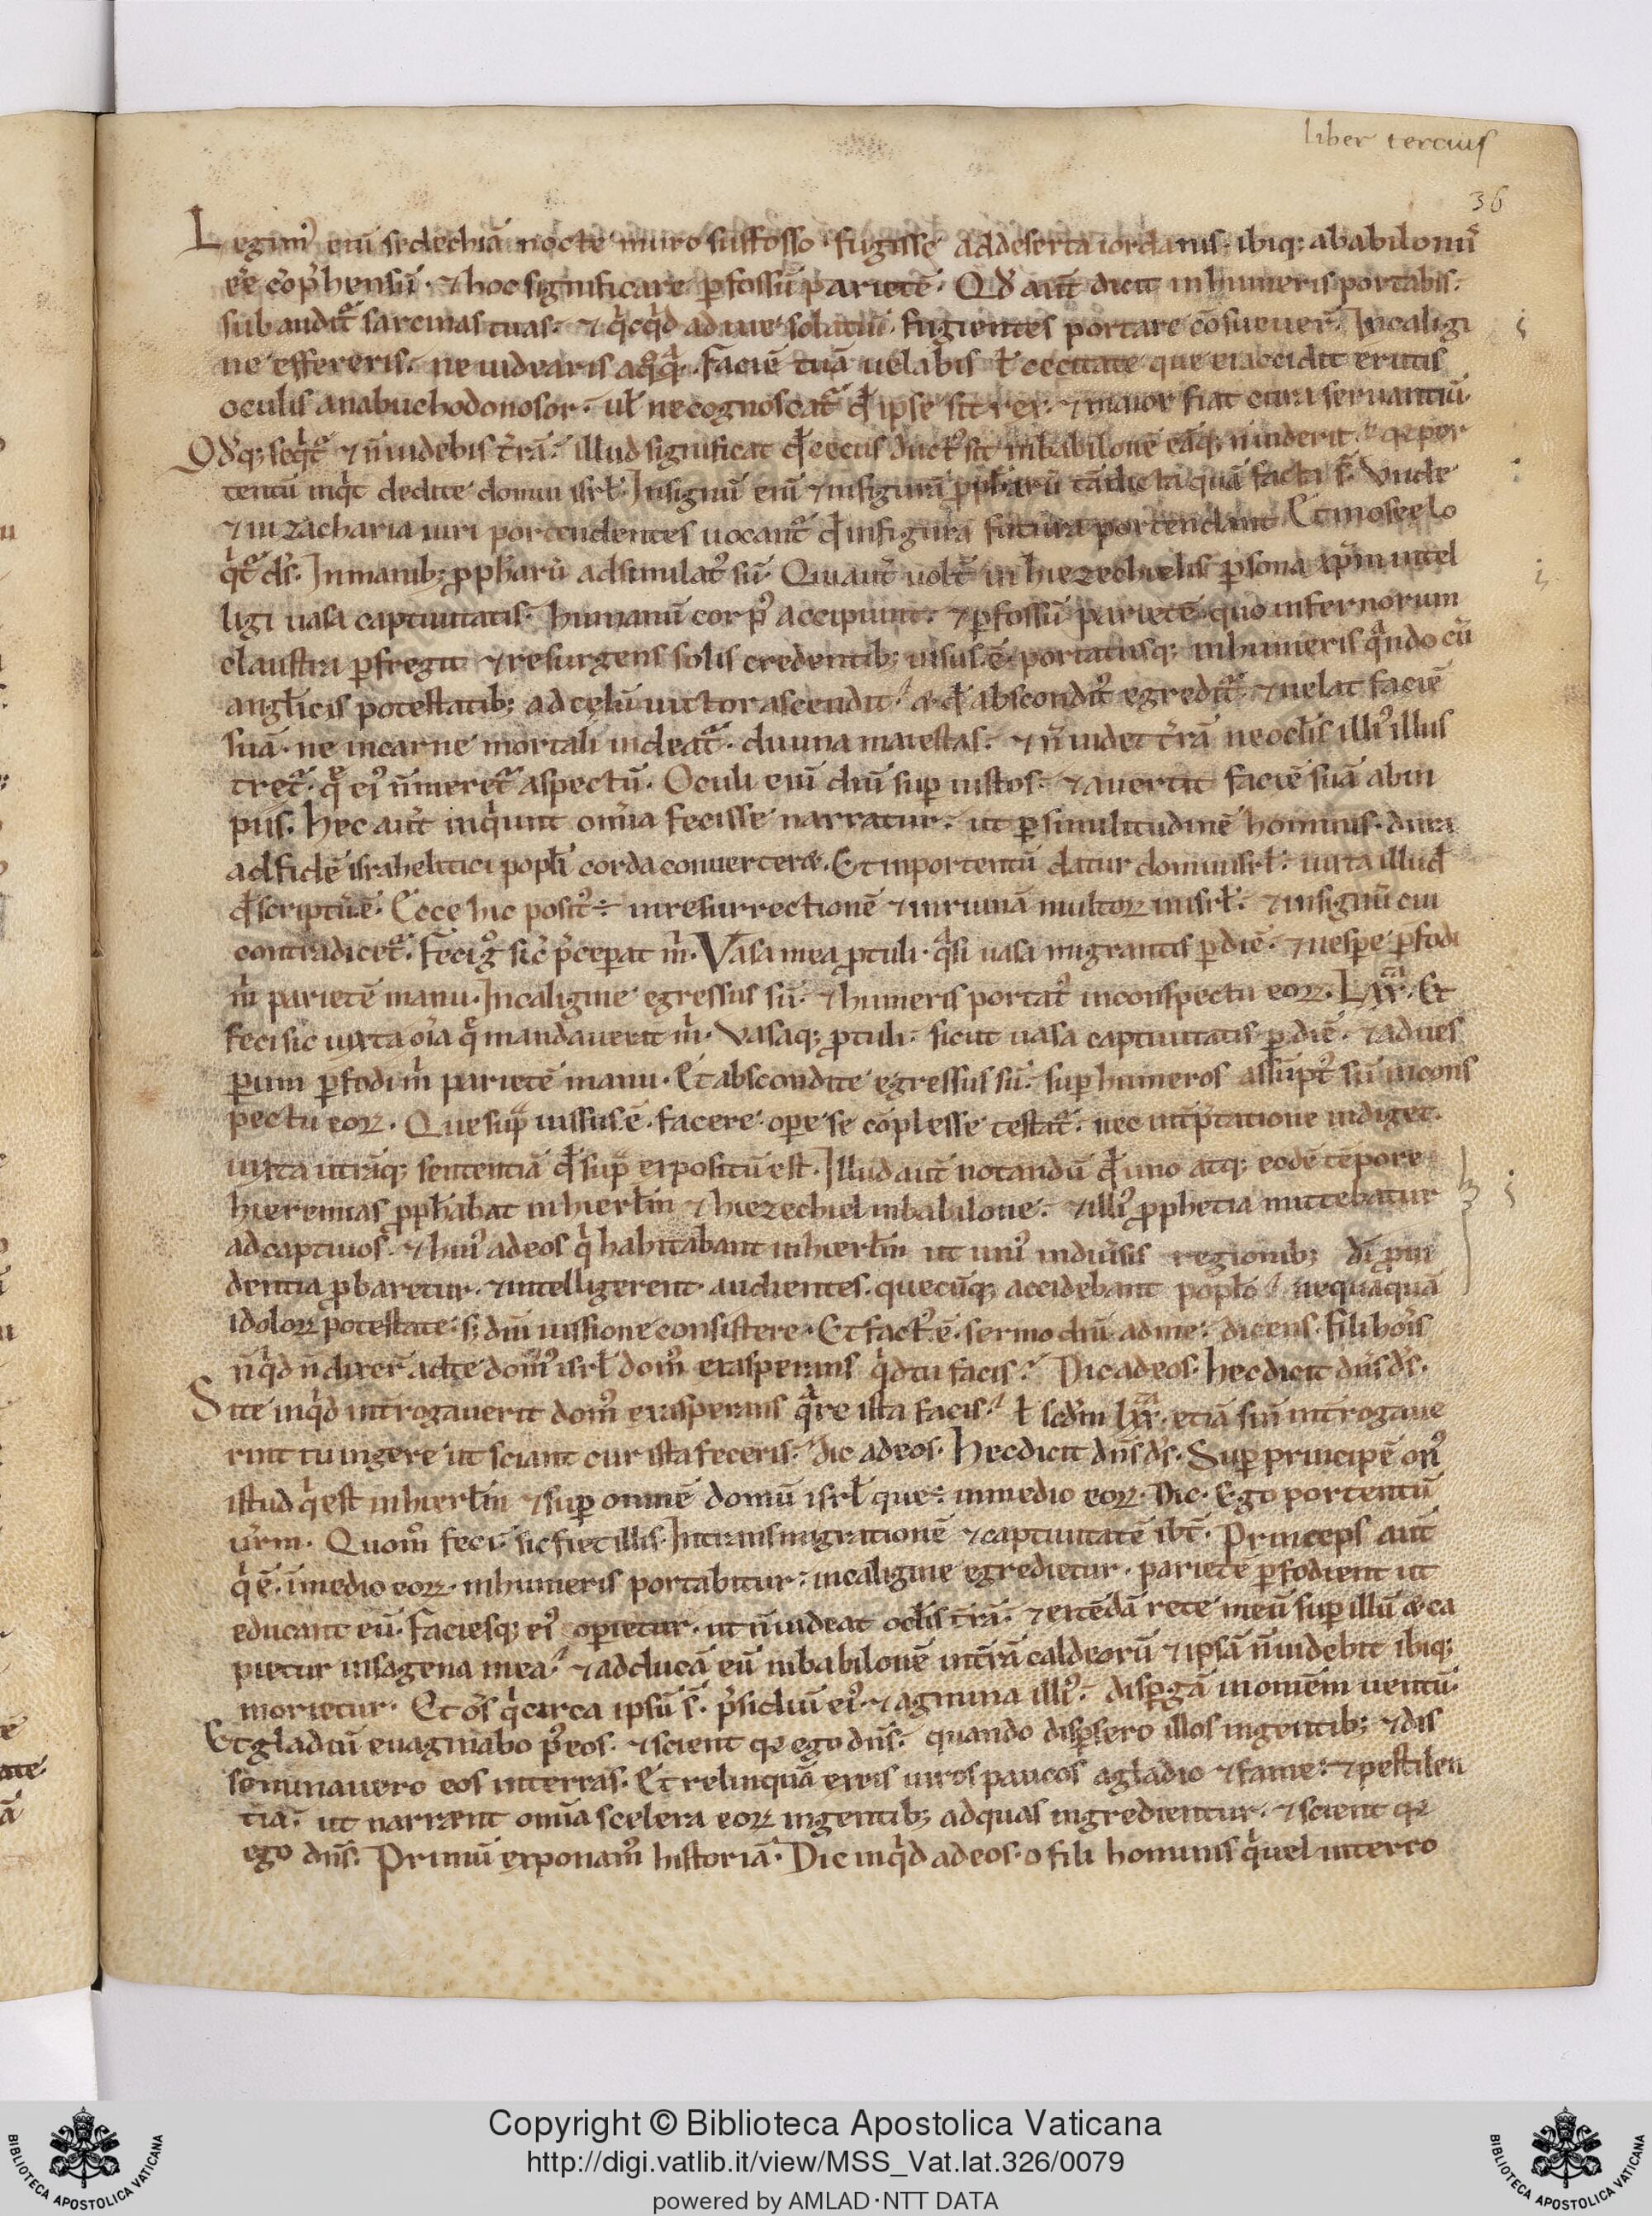 liber tercius
36
Legim᷒ eni᷒ sedechiā nocte muro suffosso. fugisse ad deserta iordanis. ibiq; a babiloniis
eē cōp̄hensū. ⁊ hoc significare ꝑfossū parietē. Qd̄ aut̄ dicit in humeris portabis.
subaudit᷑ sarcinas tuas. ⁊ qͥcqͥd ad uie solatiū. fugientes portare cōsueuer̄. In caligi
ne effereris. ne uidearis a qͦqͣ. faciē tuā uelabis ł cecitate que ei accidit erutis
oculis a nabuchodonosor. ul̄ ne cognoscat᷑ qd̄ ipse sit rex. ⁊ maior fiat cura seruantiū.
Qd̄q; seqͥt᷑ ⁊ n̄ uidebis t̄rā. illud significat qd̄ cecus duct᷒ sit in babilonē eāq; n̄ uiderit. qꝛ por
tentū inqͥt dedi te domui isrł. In signū eni᷒ ⁊ in figurā ꝓpħarū tā dicta quā facta s̄. Vnde
⁊ in zacharia uiri portendentes uocant᷑ qd̄ in figura futura portendant. Et in osee lo
qͥt᷑ ds̄. In manib; ꝓpħarū adsimulat᷒ sū. Qui aut̄ uolt̄ in hiezechielis ꝑsona xp̄m intel
ligi uasa captiuitatis. humanū corp᷒ accipiunt. ⁊ ꝑfossū parietē. quo infernorum
claustra ꝑfregit ⁊ resurgens solis credentib; uisus ē. portatusq; in humeris qͣndo cū
angłicis potestatib; ad cęlū uictor ascendit. & qd̄ abscondit᷒ egredit᷑. ⁊ uelat faciē
suā. ne in carne mortali uideat᷑. diuina maiestas. ⁊ n̄ uidet t̄rā ne oclis illi᷒ illus
tret᷑. qͥ ei᷒ n̄ meret᷑ aspectū. Oculi eni᷒ dn̄i suꝑ iustos. ⁊ auertit faciē suā ab im
piis. Hec aut̄ inqͥunt om̄ia fecisse narratur. ut ꝑ similitudinē hominis. dura
ad fidē israhelitici popłi corda conuerteret. Et in portentū datur domui isrł. iuxta illud
qd̄ scriptū ē. Ecce hic posit᷒ ÷ in resurrectionē ⁊ in ruinā multoꝝ in isrł. ⁊ in signū cui
contradicet᷑. Feci gͦ sic̄ p̄ceperat m̄. Vasa mea ꝓtuli. qͣsi uasa migrantis ꝑ diē. ⁊ uespe ꝑfodi
m̄ parietē manu. In caligine egressus sū. ⁊ humeris portat᷒ in conspectu eoꝝ. LXX. Et
feci sic iuxta oīa qͥ mandauerit m̄. Vasaq; ꝓtuli. sicut uasa captiuitatis ꝑ diē. ⁊ ad ues
ꝑum ꝑfodi m̄ parietē manu. Et abscondite egressus sū. suꝑ humeros assūpt᷒ sū in cons
pectu eoꝝ. Que supͣ iussus ē. facere. opere se cōplesse testat᷑. nec int̄p̄tatione indiget.
iuxta utrāq; sententiā qd̄ supͣ expositū est. Illud aut̄ notandū qd̄ uno atq; eodē tēpore
hieremias ꝓpħabat in hierłm ⁊ hiezechiel in babilone. ⁊ illi᷒ ꝓphetia mittebatur
ad captiuos. ⁊ hui᷒ ad eos qͥ habitabant in hierłm ut uni᷒ in diu̅sis regionib; dī ꝓui
dentia ꝓbaretur. ⁊ intelligerent audientes. quecūq; accidebant popło. nequaquā
idoloꝝ potestate. s; dn̄i iussione consistere. Et fact᷒ ē. sermo dn̄i ad me. dicens. fili hoīs
nūqͥd n̄ dixer̄ ad te dom᷒ isrł dom᷒ exasperans qͥd tu facis? Dic ad eos. hec dicit dn̄s ds̄.
Si te inqͥd int̄rogauerit dom᷒ exasperans qͣre ista facis? ł scd̄m lxx. etiā si n̄ int̄rogaue
rint tu ingere ut sciant cur ista feceris. dic ad eos. Hec dicit dn̄s ds̄. Suꝑ principē on᷒
istud qͥ est in hierłm ⁊ suꝑ omnē domū isrł que ÷ in medio eoꝝ. Dic. Ego portentū
ur̄m. Quomͦ feci. sic fiet illis. In transmigrationē ⁊ captiuitatē ibt̄. Princeps aut̄
qͥ ē. ī medio eoꝝ. in humeris portabitur. in caligine egredietur. parietē ꝑfodient ut
educant eū. Faciesq; ei᷒ operietur. ut n̄ uideat oclis t̄rā. ⁊ extēdā rete meū suꝑ illū & ca
pietur in sagena mea. ⁊ adducā eū in babilonē in t̄rā caldeorū ⁊ ipsā n̄ uidebit ibiq;
morietur. Et oēs qͥ circa ipsū s̄. p̄sidiū ei᷒. ⁊ agmina illi᷒. disꝑgā in omēm uentū.
Et gladiū euaginabo p᷒ eos. ⁊ scient qꝛ ego dn̄s. quando disꝑsero illos in gentib; ⁊ dis
seminauero eos in terras. Et relinquā ex eis uiros paucos a gladio ⁊ fame. ⁊ pestilen
tia. ut narrent omīa scelera eoꝝ in gentib; ad quas ingredientur. ⁊ scient qꝛ
ego dn̄s. Primū exponam᷒ historiā. Dic inqͥd ad eos. o fili hominis qͥ uel interro
Copyright © Biblioteca Apostolica Vaticana
http://digi.vatlib.it/view/MSS_Vat.lat.326/0079
powered by AMLAD·NTT DATA
BIBLIOTECA APOSTOLICA VATICANA
BIBLIOTECA APOSTOLICA VATICANA